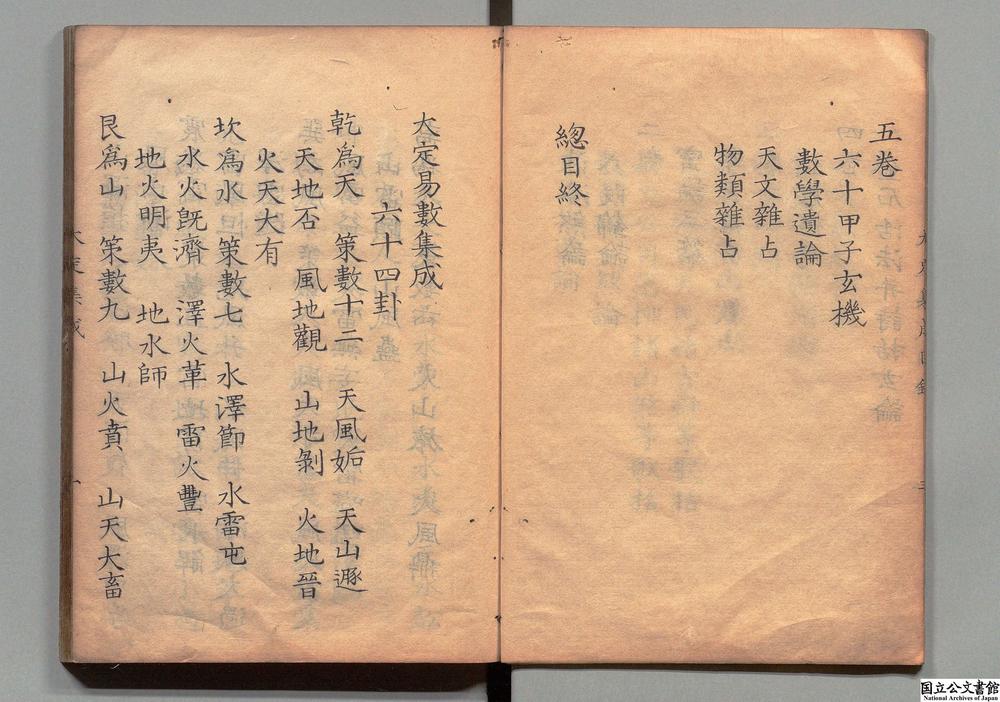 五卷
六十甲子玄機
數學遺論
天文雜占
物類雜占
總目終
大定易數集成
六十四卦
乾爲天 策數十二 天風姤 天山遯
天地否 風地觀 山地剝 火地晉
火天大有
坎爲水 策數七 水澤節 水雷屯
水火旣濟 澤火革 雷火豐
地火明夷 地水師
艮爲山 策數九 山火賁 山天大畜
国立公文書館
National Archives of Japan